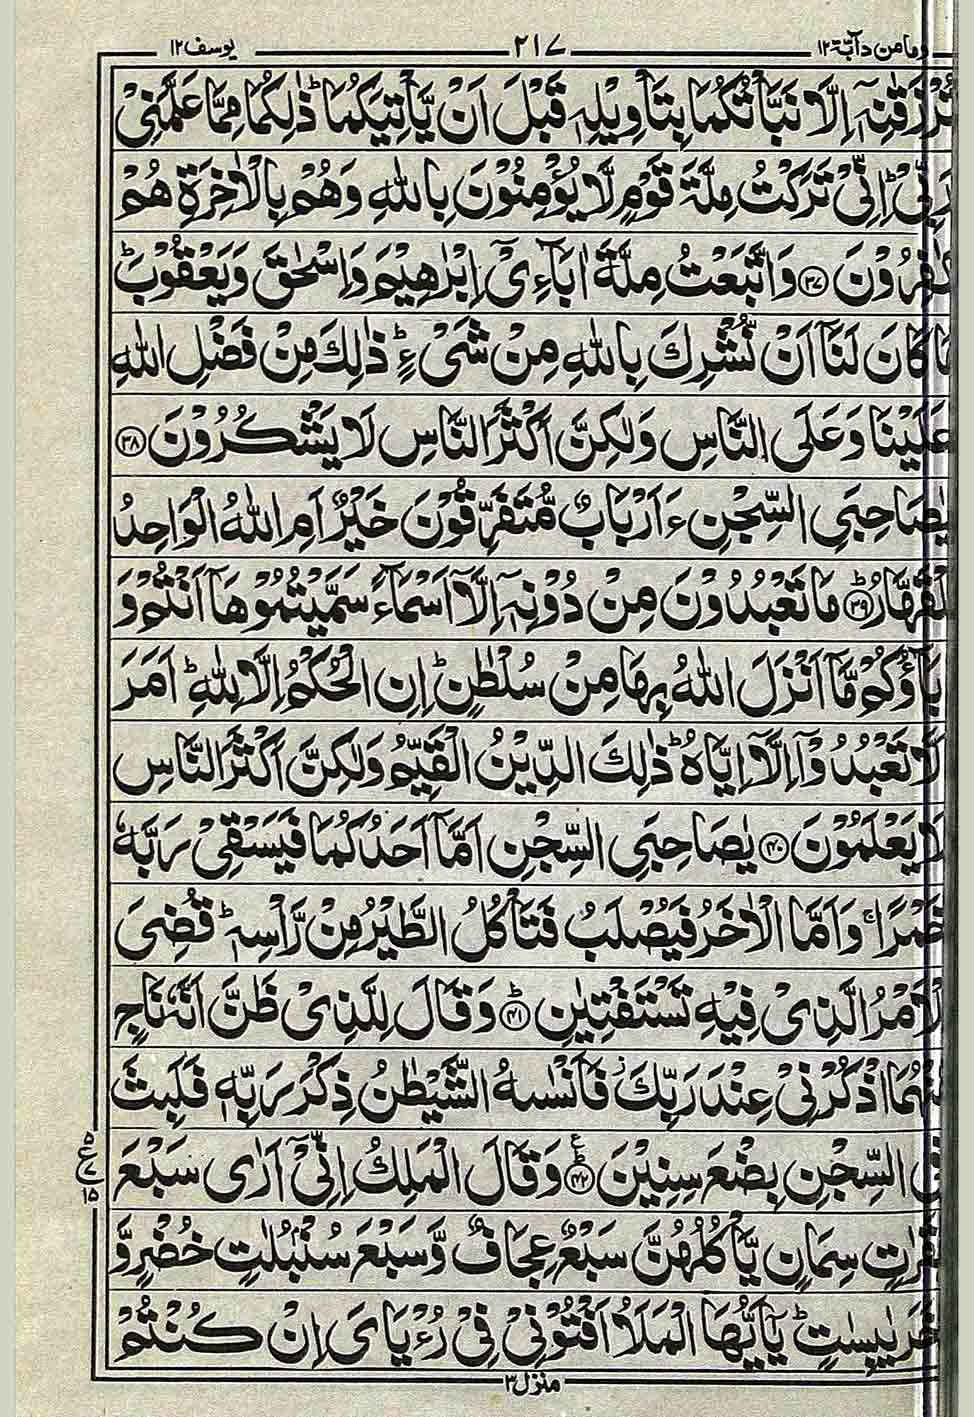 وما من دآبة ۱۲ ۲۱۷ يوسف ۱۲
تُرْزَقٰنِهٖۤ اِلَّا نَبَّاْتُكُمَا بِتَاْوِيْلِهٖ قَبْلَ اَنْ يَّاْتِيَكُمَا ؕ ذٰلِكُمَا مِمَّا عَلَّمَنِيْ
رَبِّيْ ؕ اِنِّيْ تَرَكْتُ مِلَّةَ قَوْمٍ لَّا يُؤْمِنُوْنَ بِاللّٰهِ وَهُمْ بِالْاٰخِرَةِ هُمْ
كٰفِرُوْنَ ﴿۳۷﴾ وَاتَّبَعْتُ مِلَّةَ اٰبَآءِيْۤ اِبْرٰهِيْمَ وَاِسْحٰقَ وَيَعْقُوْبَ ؕ
مَا كَانَ لَنَاۤ اَنْ نُّشْرِكَ بِاللّٰهِ مِنْ شَيْءٍ ؕ ذٰلِكَ مِنْ فَضْلِ اللّٰهِ
عَلَيْنَا وَعَلَى النَّاسِ وَلٰكِنَّ اَكْثَرَ النَّاسِ لَا يَشْكُرُوْنَ ﴿۳۸﴾
يٰصَاحِبَيِ السِّجْنِ ءَاَرْبَابٌ مُّتَفَرِّقُوْنَ خَيْرٌ اَمِ اللّٰهُ الْوَاحِدُ
الْقَهَّارُ ﴿۳۹﴾ؕ مَا تَعْبُدُوْنَ مِنْ دُوْنِهٖۤ اِلَّاۤ اَسْمَآءً سَمَّيْتُمُوْهَاۤ اَنْتُمْ وَ
اٰبَآؤُكُمْ مَّاۤ اَنْزَلَ اللّٰهُ بِهَا مِنْ سُلْطٰنٍ ؕ اِنِ الْحُكْمُ اِلَّا لِلّٰهِ ؕ اَمَرَ
اَلَّا تَعْبُدُوْۤا اِلَّاۤ اِيَّاهُ ؕ ذٰلِكَ الدِّيْنُ الْقَيِّمُ وَلٰكِنَّ اَكْثَرَ النَّاسِ
لَا يَعْلَمُوْنَ ﴿۴۰﴾ يٰصَاحِبَيِ السِّجْنِ اَمَّاۤ اَحَدُكُمَا فَيَسْقِيْ رَبَّهٗ
خَمْرًا ۚ وَاَمَّا الْاٰخَرُ فَيُصْلَبُ فَتَاْكُلُ الطَّيْرُ مِنْ رَّاْسِهٖ ؕ قُضِيَ
الْاَمْرُ الَّذِيْ فِيْهِ تَسْتَفْتِيٰنِ ﴿۴۱﴾ؕ وَقَالَ لِلَّذِيْ ظَنَّ اَنَّهٗ نَاجٍ
مِّنْهُمَا اذْكُرْنِيْ عِنْدَ رَبِّكَ ؗ فَاَنْسٰىهُ الشَّيْطٰنُ ذِكْرَ رَبِّهٖ فَلَبِثَ
فِي السِّجْنِ بِضْعَ سِنِيْنَ ﴿۴۲﴾ؕ ع وَقَالَ الْمَلِكُ اِنِّيْۤ اَرٰى سَبْعَ
بَقَرٰتٍ سِمَانٍ يَّاْكُلُهُنَّ سَبْعٌ عِجَافٌ وَّسَبْعَ سُنْۢبُلٰتٍ خُضْرٍ وَّ
اُخَرَ يٰبِسٰتٍ ؕ يٰۤاَيُّهَا الْمَلَاُ اَفْتُوْنِيْ فِيْ رُءْيَايَ اِنْ كُنْتُمْ
۵
ع ۷
۱۵
منزل ۳